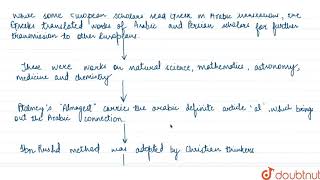 While some European scholars read Greek in Arabic translation, the
Greeks translated works of Arabic and Persian scholars for further
transmission to other Europeans.
These were works on natural science, mathematics, astronomy,
medicine and chemistry
Ptolemy's "Almagest" carries the arabic definite article 'al' which brings
out the Arabic connection.
Ibn Rushd method was adopted by Christian thinkers
doubtnut